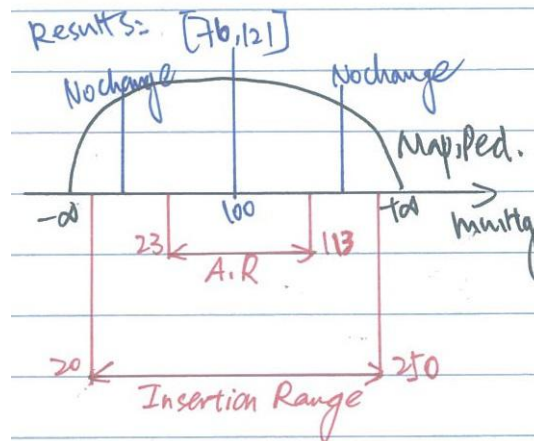 Results: [76,121]
No change
No change
Map,Ped.
-∞
100
+∞
mmHg
23
113
A.R
20
250
Insertion Range